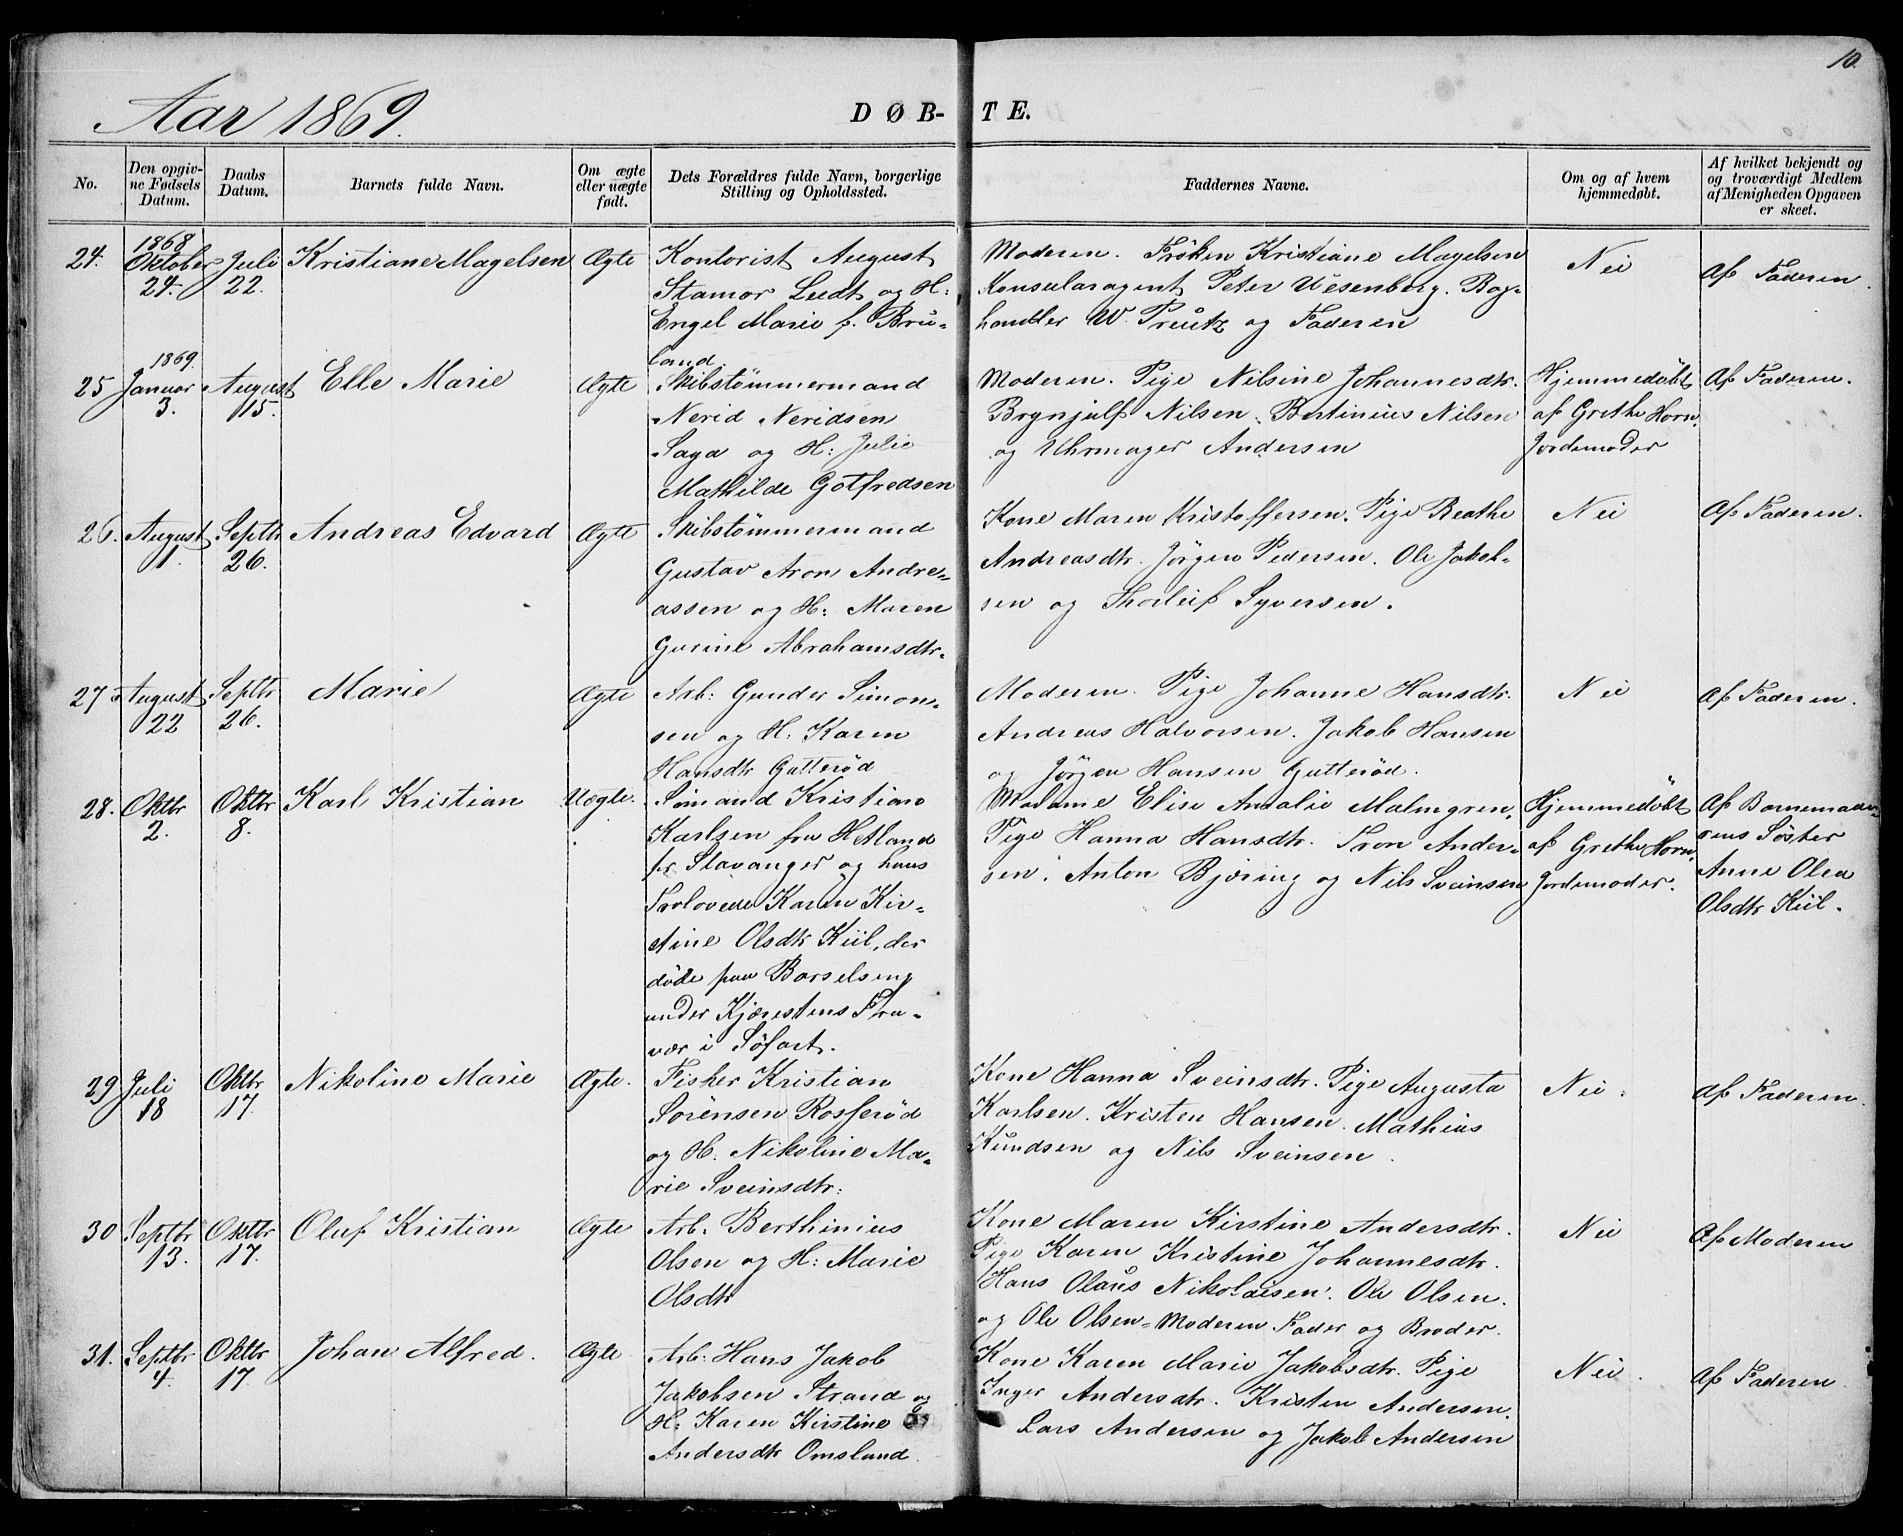 10.
Aar 1869.
DØB-TE.
No.
Den opgiv-
ne Fødsels
Datum.
Daabs
Datum.
Barnets fulde Navn.
Om ægte
eller uægte
født.
Dets Forældres fulde Navn, borgerlige
Stilling og Opholdssted.
Faddernes Navne.
Om og af hvem
hjemmedøbt.
Af hvilket bekjendt og
og troværdigt Medlem
af Menigheden Opgaven
er skeet.
24.
1868
Oktober
24.
Juli
22.
Kristiane Magelsen
Ægte
Kontorist August
Stamor Lundt og H:
Engel Marie f. Bru-
land.
Moderen. Frøken Kristiane Magelsen
Konsularagent Peter Uesenberg. Bog-
handler W. Preutz og Faderen
Nei
Af Faderen.
25
1869.
Januar
3.
August
15.
Elle Marie
Ægte
Skibstømmermand
Nerid Neridsen
Saga og H: Julie
Mathilde Gotfredsen
Moderen. Pige Nilsine Johannesdtr.
Brynjulf Nilsen. Bertinius Nilsen
og Uhrmager Andersen
Hjemmedøbt
af Grethe Horn,
Jordemoder
Af Faderen.
26.
August
1.
Septbr
26.
Andreas Edvard
Ægte
Skibstømmermand
Gustav Aron Andre-
assen og H: Maren
Gurine Abrahamsdtr.
Kone Maren Kristoffersen. Pige Beathe
Andreasdtr. Jörgen Pedersen. Ole Jakob-
sen og Thorleif Syversen.
Nei
Af Faderen.
27
August
22
Septbr
26.
Marie
Ægte
Arb: Gunder Simon-
sen og H. Karen
Hansdtr Gutterød
Moderen. Pige Johanne Hansdtr.
Andreas Halvorsen. Jakob Hansen
og Jörgen Hansen Gutterød.
Nei
Af Faderen.
28.
Oktbr
2.
Oktbr
8.
Karl Kristian
Uægte.
Sömand Kristian
Karlsen fra Hetland
pr Stavanger og hans
Forlovede Karen Kir-
stine Olsdtr Kiil, der
döde paa Barselseng
under Kjærestens Fra-
vær i Söfart.
Madame Elise Amalie Malmgren,
Pige Hanna Hansdtr. Tron Ander-
sen. Anton Bjering og Nils Sveinsen
Hjemmedøbt
af Grethe Horn,
Jordemoder.
Af Barnemode-
rens Söster
Anne Olea
Olsdtr Kiil.
29.
Juli
18
Oktbr
17.
Nikoline Marie
Ægte.
Fisker Kristian
Sörensen Rosferød
og H. Nikoline Ma-
rie Sveinsdtr:
Kone Hanna Sveinsdtr. Pige Augusta
Karlsen. Kristen Hansen. Mathius
Knudsen og Nils Sveinsen.
Nei.
Af Faderen.
30
Septbr
13.
Oktbr
17.
Oluf Kristian
Ægte
Arb. Berthinius
Olsen og H: Marie
Olsdtr
Kone Maren Kirstine Andersdtr.
Pige Karen Kristine Johannesdtr.
Hans Olaus Nikolaisen. Ole Olsen.
og Ole Olsen = Moderen Fader og Broder.
Nei
Af Moderen
31.
Septbr
4.
Oktbr
17.
Johan Alfred.
Ægte
Arb: Hans Jakob
Jakobsen Strand og
H: Karen Kirstine
Andersdtr Omsland.
Kone Karen Marie Jakobsdtr. Pige
Inger Andersdtr. Kristen Andersen.
Lars Andersen og Jakob Andersen
Nei.
Af Faderen.